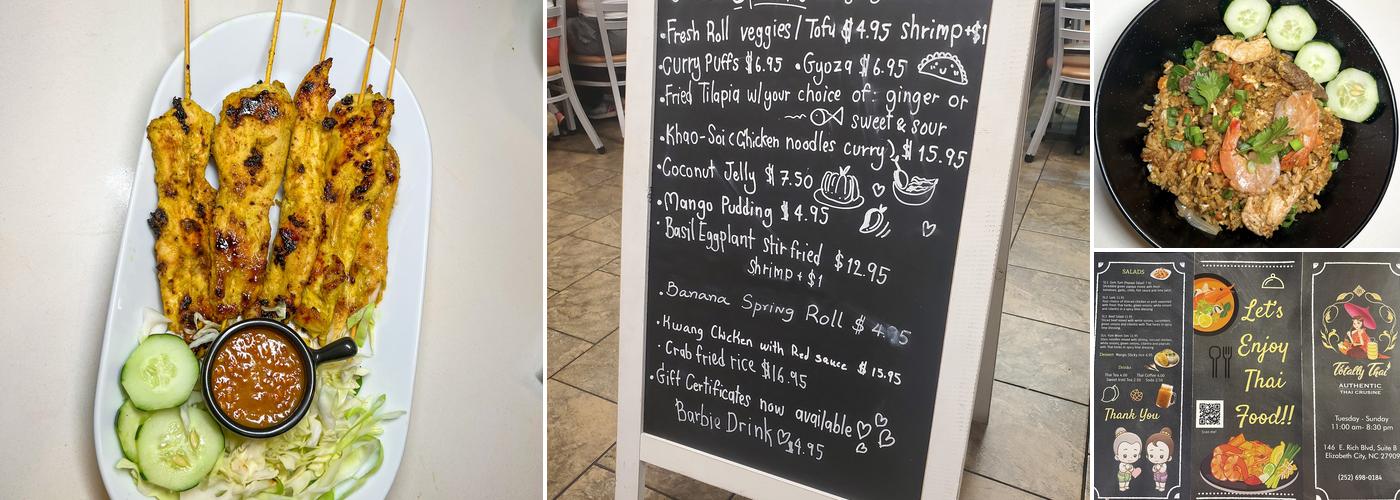 •Fresh Roll veggies/Tofu $4.95 shrimp+$1
•Curry Puffs $6.95 •Gyoza $6.95
•Fried Tilapia w/your choice of: ginger or
sweet & sour
•Khao-Soi (Chicken noodles curry) $15.95
•Coconut Jelly $7.50
•Mango Pudding $4.95
•Basil Eggplant stir fried $12.95
shrimp + $1
•Banana Spring Roll $4.95
•Kwang Chicken with Red sauce $15.95
•Crab fried rice $16.95
•Gift Certificates now available
Barbie Drink $4.95
SALADS
Dessert Mango Sticky rice 6.95
Drinks
Thai Tea 4.00 Thai Coffee 4.00
Sweet Iced Tea 2.50 Soda 2.50
Thank You
Let's
Enjoy
Thai
Food!!
Totally Thai
AUTHENTIC
THAI CRUSINE
Tuesday - Sunday
11:00 am- 8:30 pm
146 E. Rich Blvd, Suite B
Elizabeth City, NC 27909
(252) 698-0184